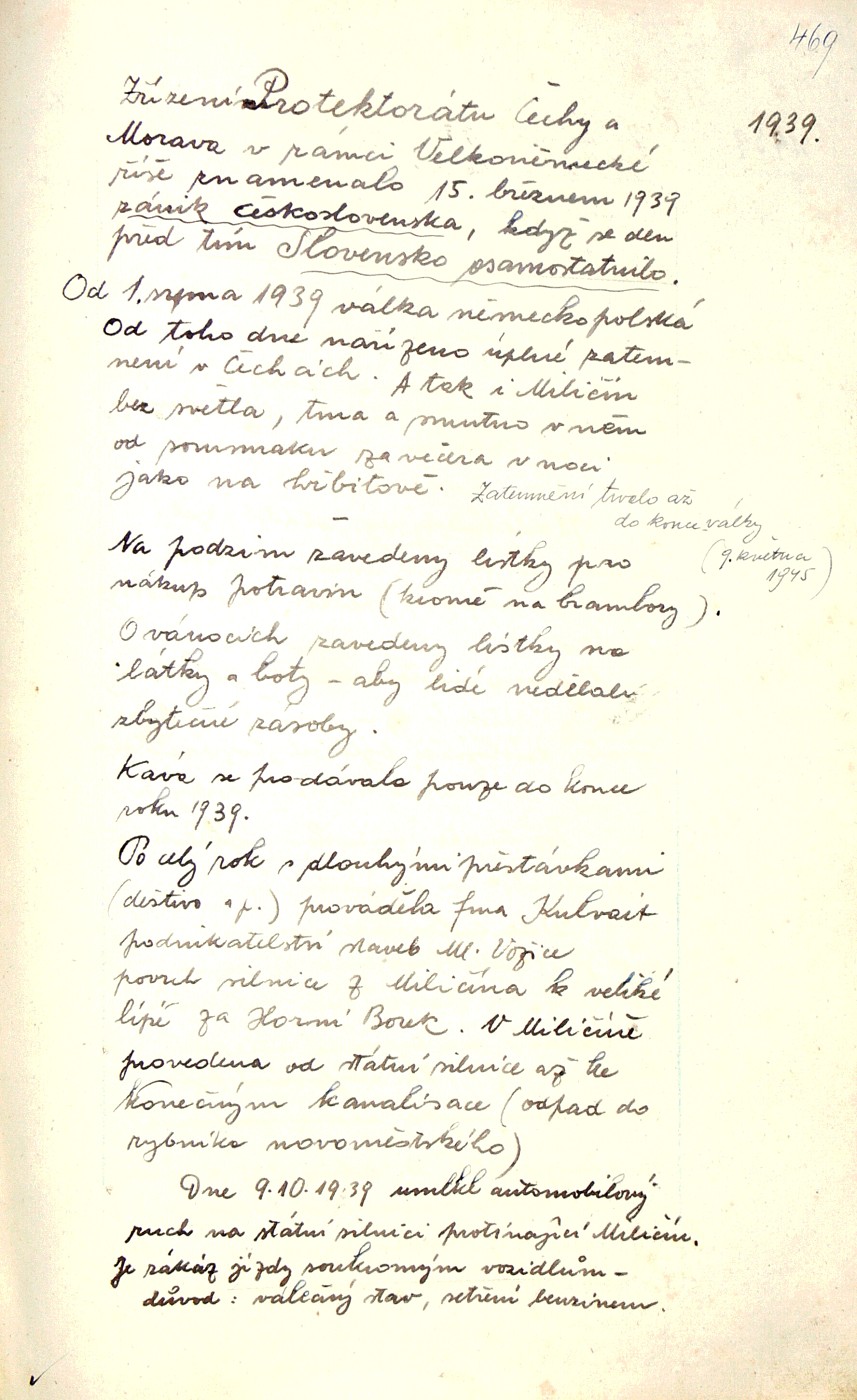 469
1939.
Zřízení Protektorátu Čechy a
Morava v rámci Velkoněmecké
říše znamenalo 15. březnem 1939
zánik československa, když se den
před tím Slovensko osamostatnilo.
Od 1. srpna 1939 válka německopolská
Od toho dne nařízeno úplné zatem-
není v Čechách. A tak i Miličín
bez světla, tma a smutno v něm
od soumraku zavečera v noci
jako na hřbitově. Zatemnění trvalo až
do konce války
(9. května
1945)
Na podzim zavedeny lístky pro
nákup potravin (kromě na brambory).
O vánocích zavedeny lístky na
látky a boty - aby lidé nedělali
zbytečné zásoby.
Kává se prodávala pouze do konce
roku 1939.
Po celý rok s dlouhými přestávkami
(deštivo a p.) prováděla fma Kulvait
podnikatelství staveb Ml. Vožice
povrch silnice z Miličína k veliké
lípě za Horní Borek. V Miličíně
provedena od státní silnice až ke
konečným kanalisace (odpad do
rybníka novoměstského)
Dne 9.10.1939 umlkl automobilový
ruch na státní silnici protínající Miličín.
Je zákaz jízdy soukromým vozidlům -
důvod: válečný stav, šetření benzinem.